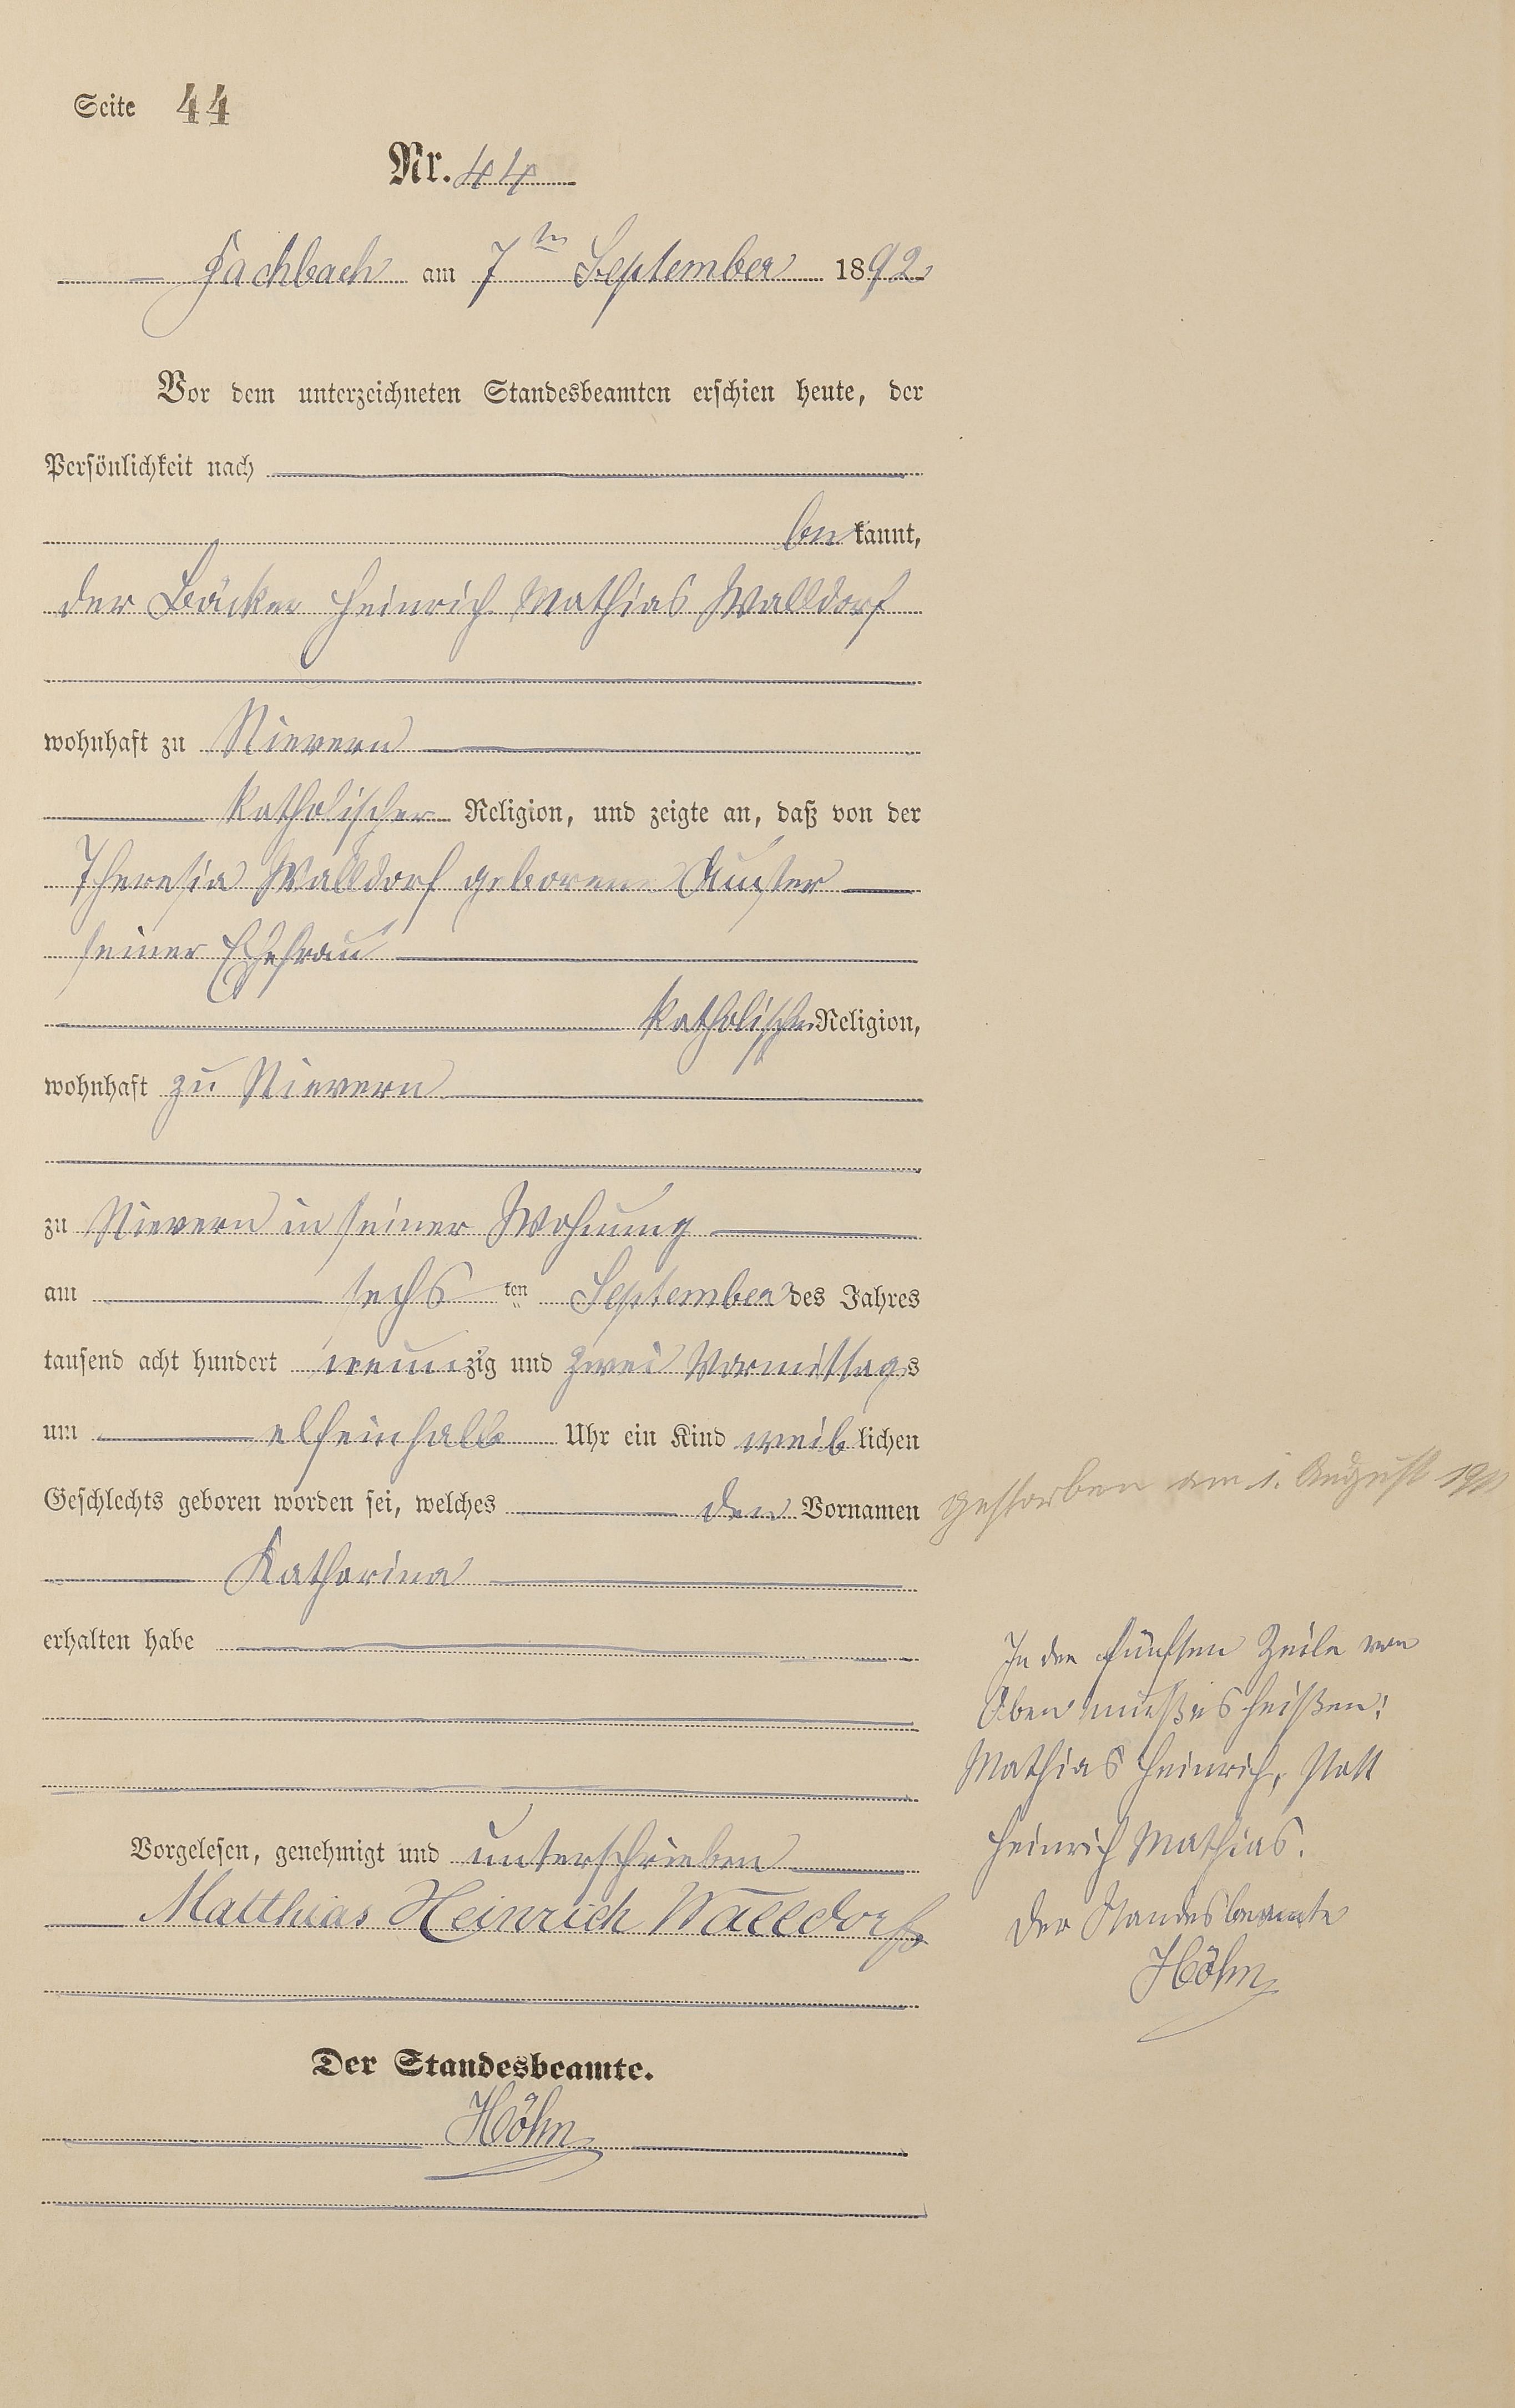 Seite 44
Nr. 44
Fachbach am 7ten September 1892
Vor dem unterzeichneten Standesbeamten erschien heute, der
Persönlichkeit nach
be kannt,
der Bäcker Heinrich Mathias Walldorf
wohnhaft zu Nievern
katholischer Religion, und zeigte an, daß von der
Theresia Walldorf geborene
seiner Ehefrau
katholischer Religion,
wohnhaft zu Nievern
zu Nievern in seiner Wohnung
am sechs ten September des Jahres
tausend acht hundert neunzig und zwei Vormittags
um elfeinhalb Uhr ein Kind weiblichen
Geschlechts geboren worden sei, welches den Vornamen
Katharina
erhalten habe
Vorgelesen, genehmigt und unterschrieben
Matthias Heinrich Walldorf
Der Standesbeamte.
Höhn
gestorben am 1. August
In der fünften Zeile von
Oben muß es heißen:
Mathias Heinrich, statt
Heinrich Mathias.
Der Standesbeamte
Höhn